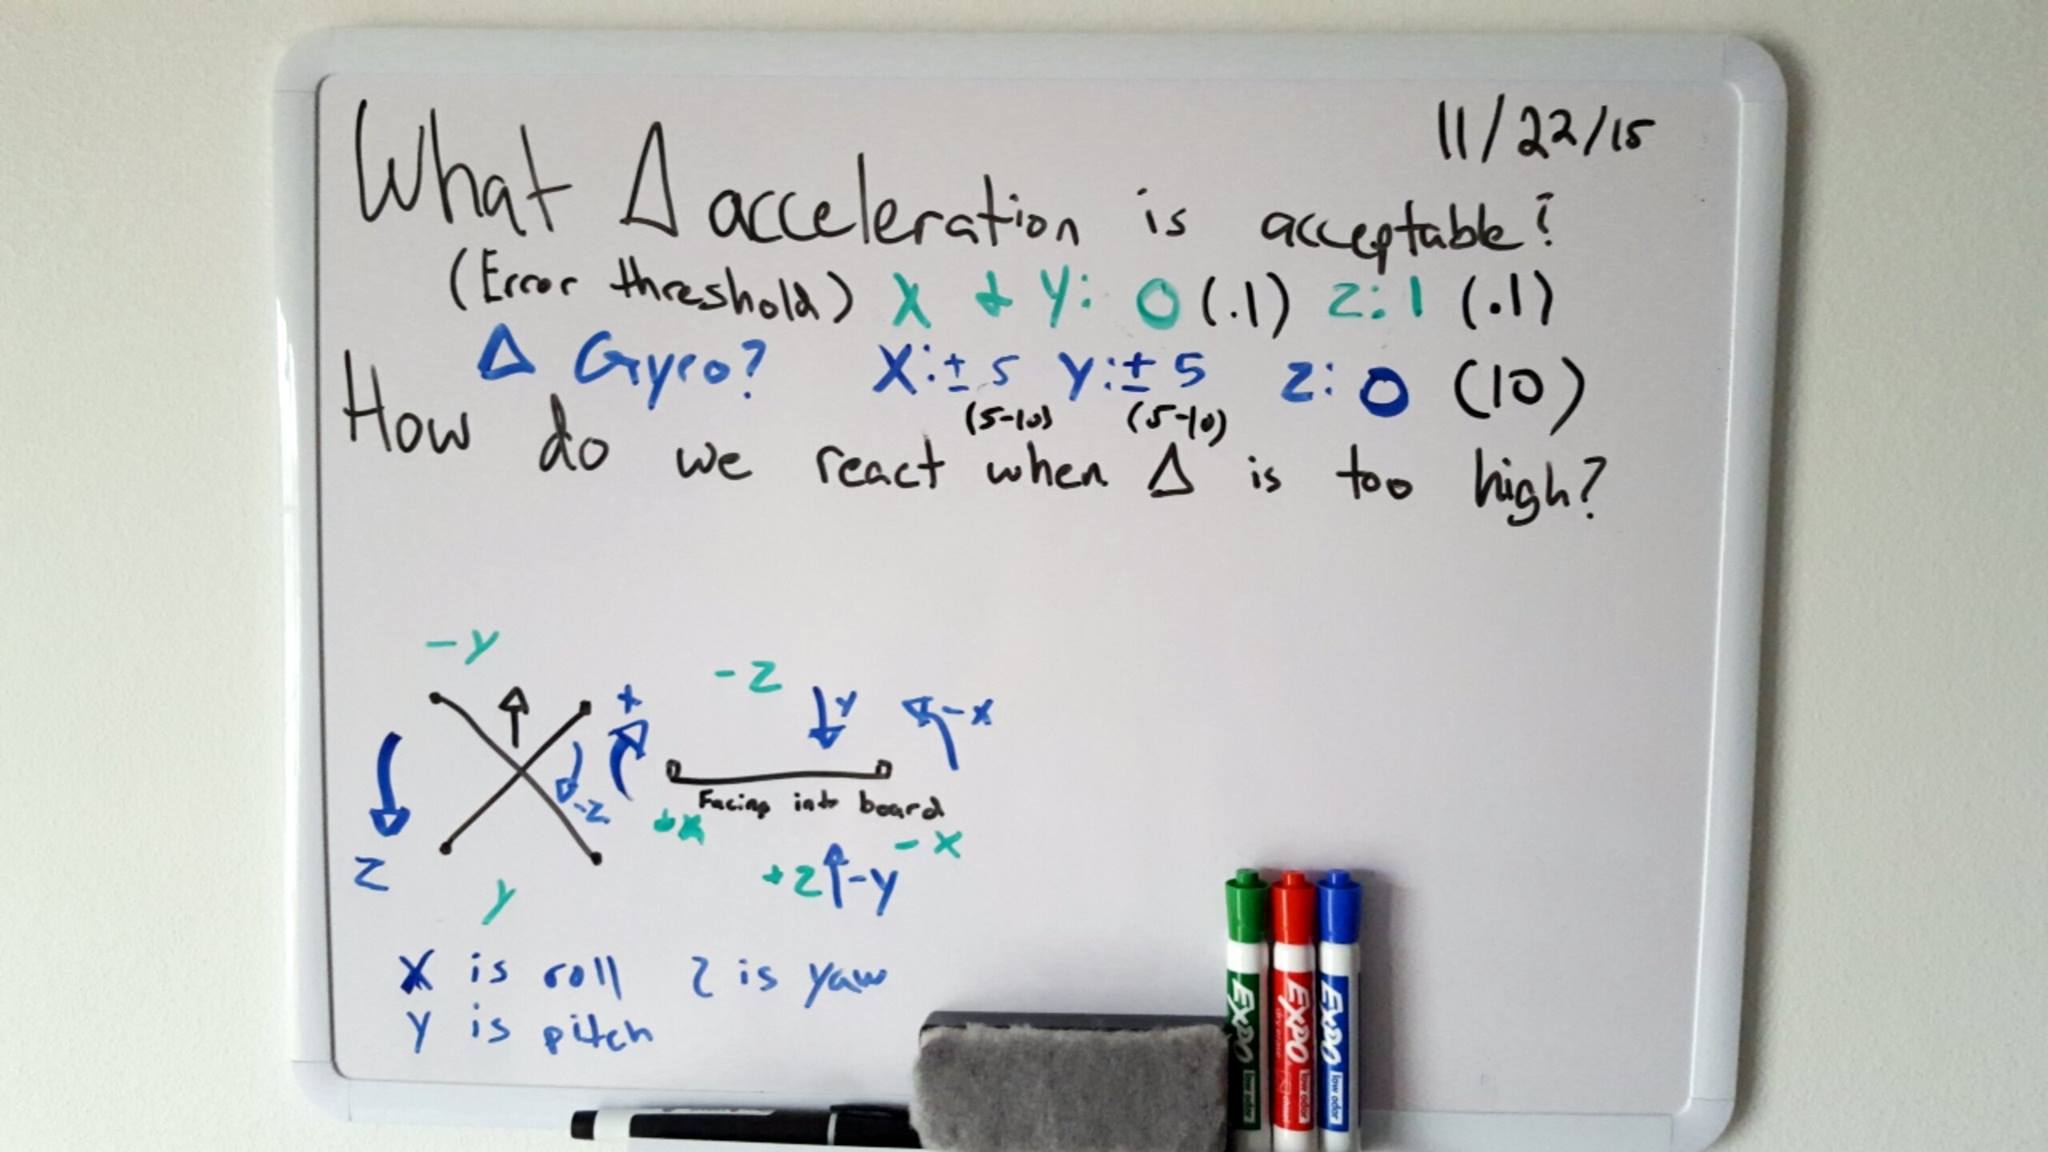 11/22/15
What Δ acceleration is acceptable?
(Error threshold) X + Y: 0 (.1) Z: 1 (.1)
Δ Gyro? X: ± 5 Y: ± 5 Z: 0 (10)
(5-10) (5-10)
How do we react when Δ is too high?
-Y
-Z
X
Y
-X
-Z
Facing into board
+X
-X
Z
Y
+Z
-Y
X is roll Z is yaw
Y is pitch
EXPO low odor
EXPO low odor
EXPO low odor